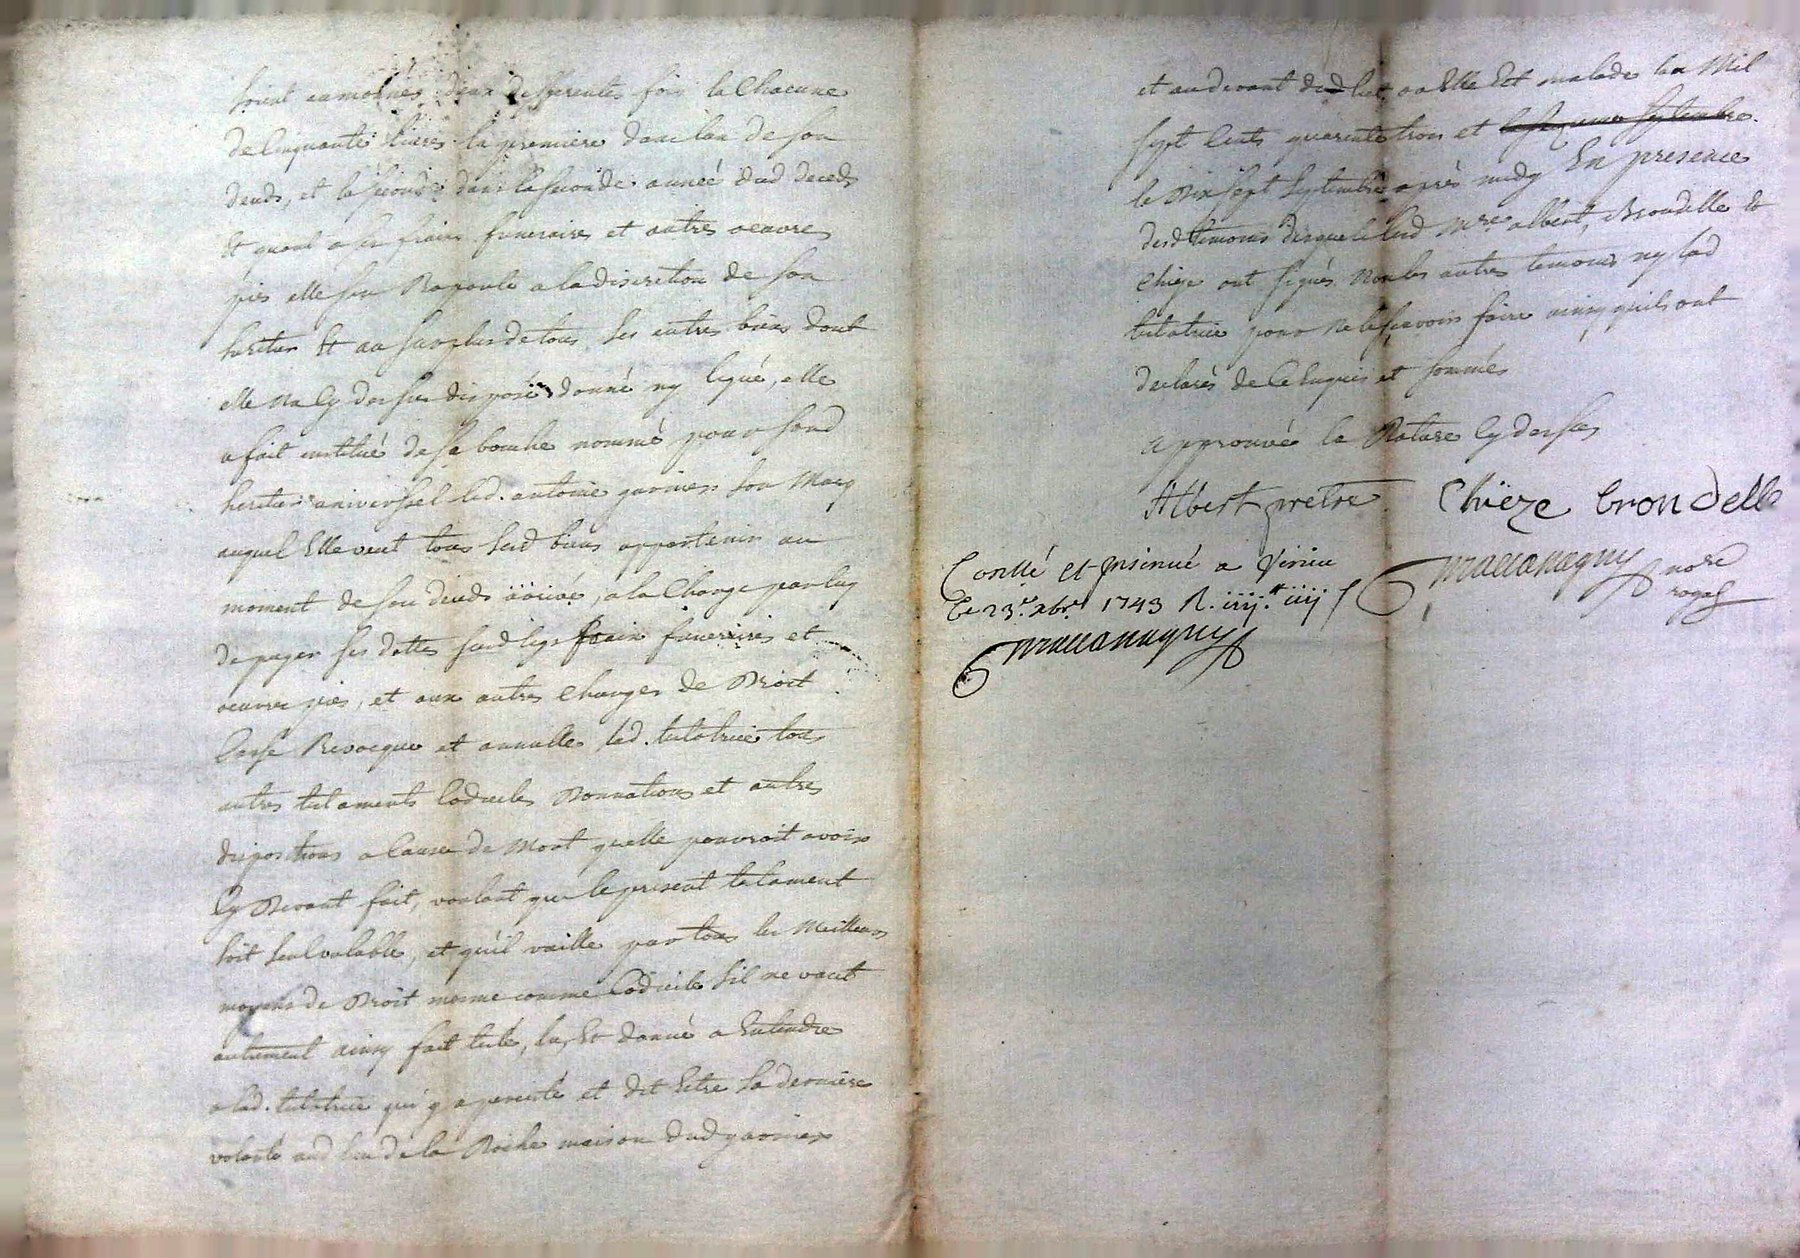 soient aumonés deux differentes fois la Chacune
de Cinquante livres la premiere dans lan de son
deceds, et la seconde dans la seconde année dud deceds
Et quant a ses fraix funeraires et autres oeuvres
pies elle sen Raporte a la discretion de son
heritier Et au surplus de tous ses autres biens dont
elle na Cy dessus disposé donné ny legué, elle
a fait institué de sa bouche nommé pour sond
heritier universsel led. antoine garnier son Mary
auquel Elle veut tous sesd biens appartenir au
moment de son deceds arrivé, a la Charge par luy
de payer ses dettes susd legs fraix funeraires et
oeuvres pies, et aux autres Charges de Droit
Casse Revocque et annulle lad. testatrice tous
autres testaments Codiciles Donnations et autres
dispositions a Cause de Mort quelle pourroit avoir
Cy Devant fait, voulant que le present testament
soit seul valable, et quil vaille par tous les Meilleurs
moyens de Droit mesme comme Codicile sil ne vaut
autrement ainsy fait testé, lu, Et donné a Entendre
a lad. testatrice qui y a persisté et dit Estre sa derniere
volonté aud lieu de la Roche maison dud garnier
et au devant dud lict ou Elle Est malade lan Mil
sept Cents quarente trois et le septembre
le Dix sept Septembre après midy En presence
desd temoins desquels lesd Mre albert, Brondelle Et
Chieze ont signés Non les autres temoins ny lad
testatrice pour ne le sçavoir faire ainsy quils ont
declarés de Ce Enquis et sommés
Approuvée la Rature Cy dessus
Albert pretre Chièze brondelle
nore
royal
Conllé et Insinué a
Le 23e. xbre. 1743 R. iiij.tt iiij s